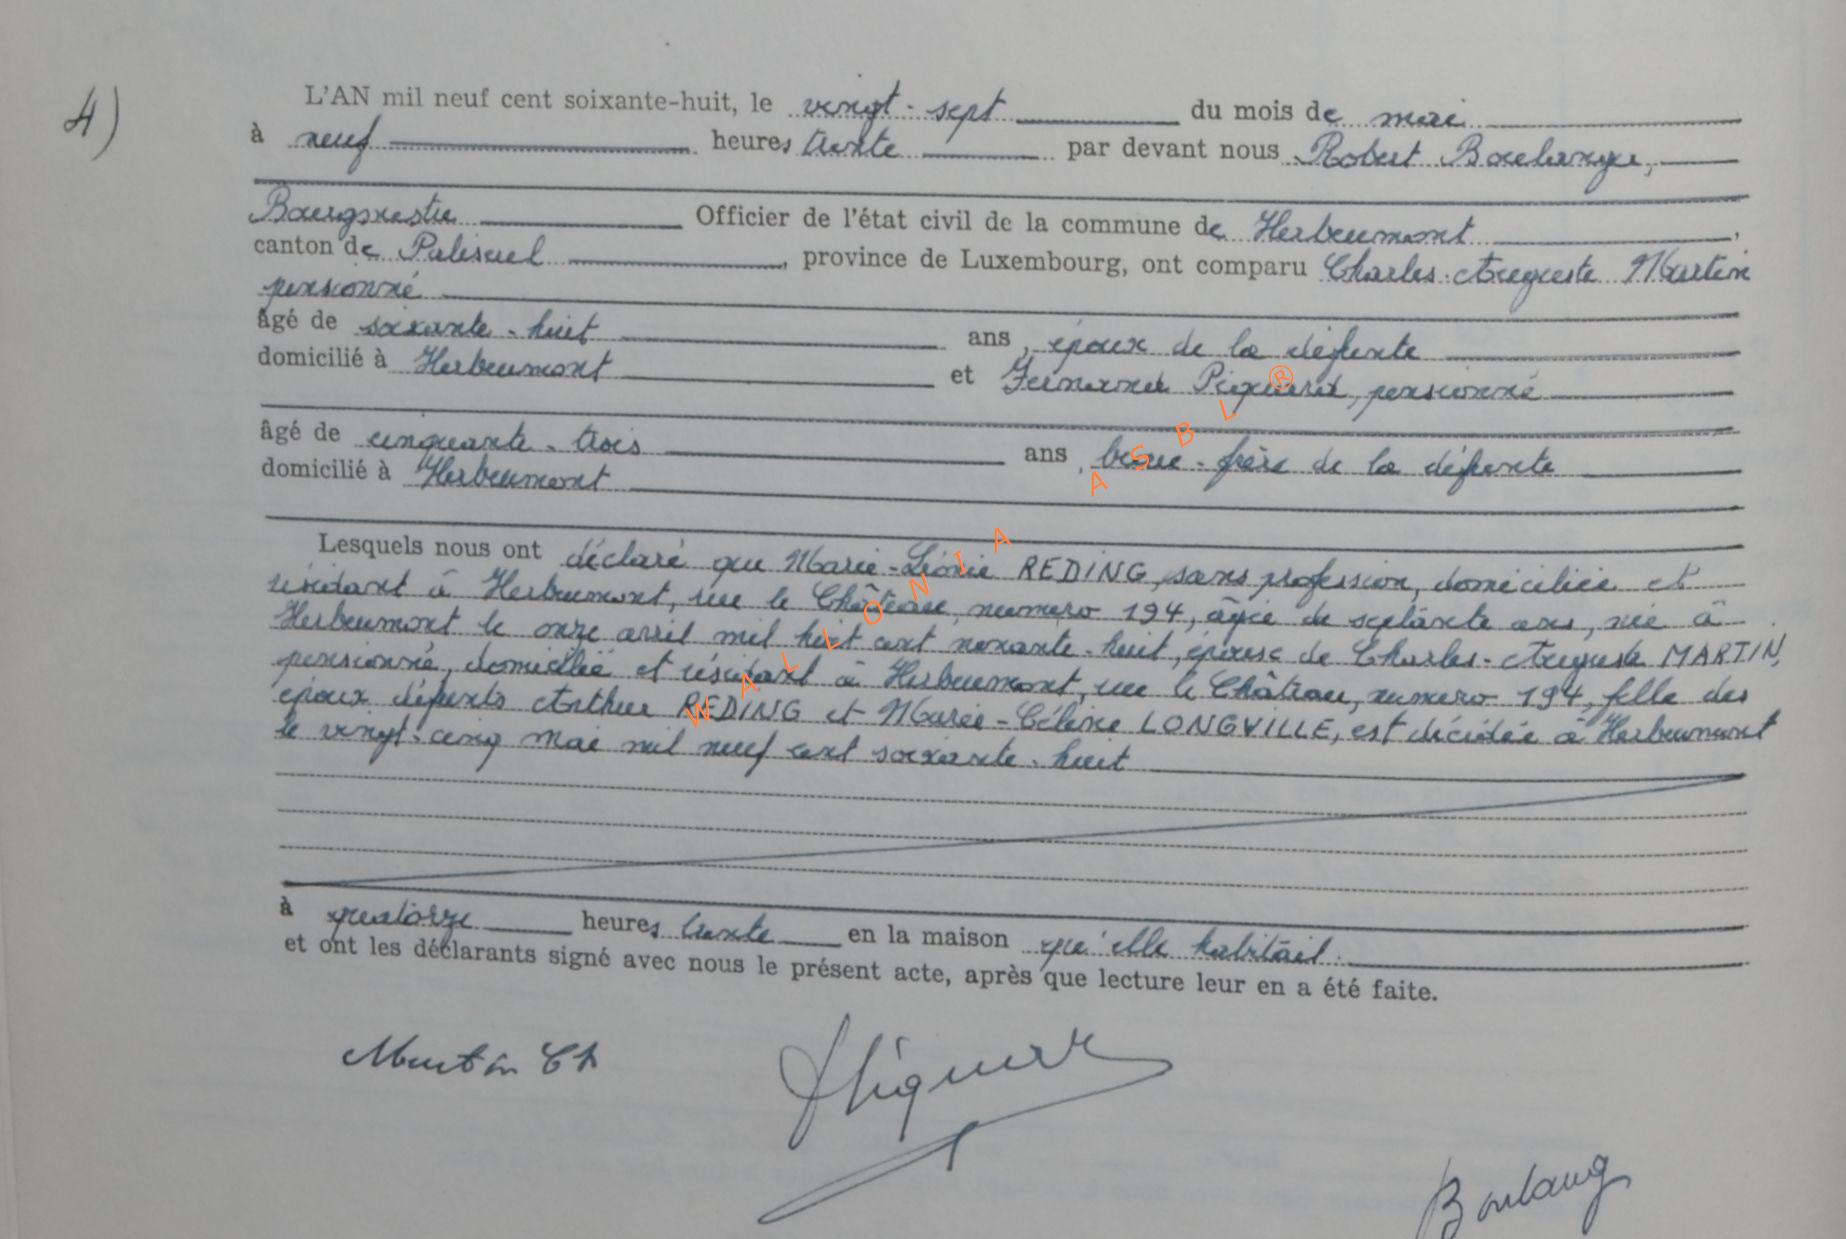 4)
L'AN mil neuf cent soixante-huit, le vingt-sept du mois de mai
à neuf heures trente par devant nous Robert Boulanger,
Bourgmestre Officier de l'état civil de la commune de Herbeumont,
canton de Paliseul, province de Luxembourg, ont comparu Charles-Auguste Martin
pensionné
âgé de soixante-huit ans, époux de la défunte
domicilié à Herbeumont et Fernand Piquard, pensionné
âgé de cinquante-trois ans, beau-frère de la défunte
domicilié à Herbeumont
Lesquels nous ont déclaré que Marie-Léonie REDING, sans profession, domiciliée et
résidant à Herbeumont, rue le Château, numéro 194, âgée de septante ans, née à
Herbeumont le onze avril mil huit cent nonante-huit, épouse de Charles-Auguste MARTIN,
pensionné, domicilié et résidant à Herbeumont, rue le Château, numéro 194, fille des
époux défunts Arthur REDING et Marie-Céline LONGVILLE, est décédée à Herbeumont
le vingt-cinq mai mil neuf cent soixante-huit
à quatorze heures trente en la maison qu'elle habitait.
et ont les déclarants signé avec nous le présent acte, après que lecture leur en a été faite.
Martin Ch
Boulang
WALLONIA ASBL ®